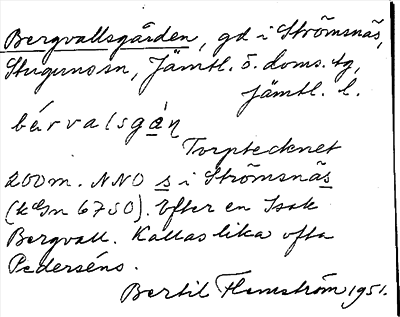 Bergvallsgården, gd i Strömsnäs,
Stugun sn, Jämtl. ö. doms. tg,
Jämtl. l.
bárvalsgàṇ
Torptecknet
200 m. NNO s i Strömsnäs
(kGn 6750). Efter en Isak
Bergvall. Kallas lika ofta
Pederséns.
Bertil Flemström 1951.